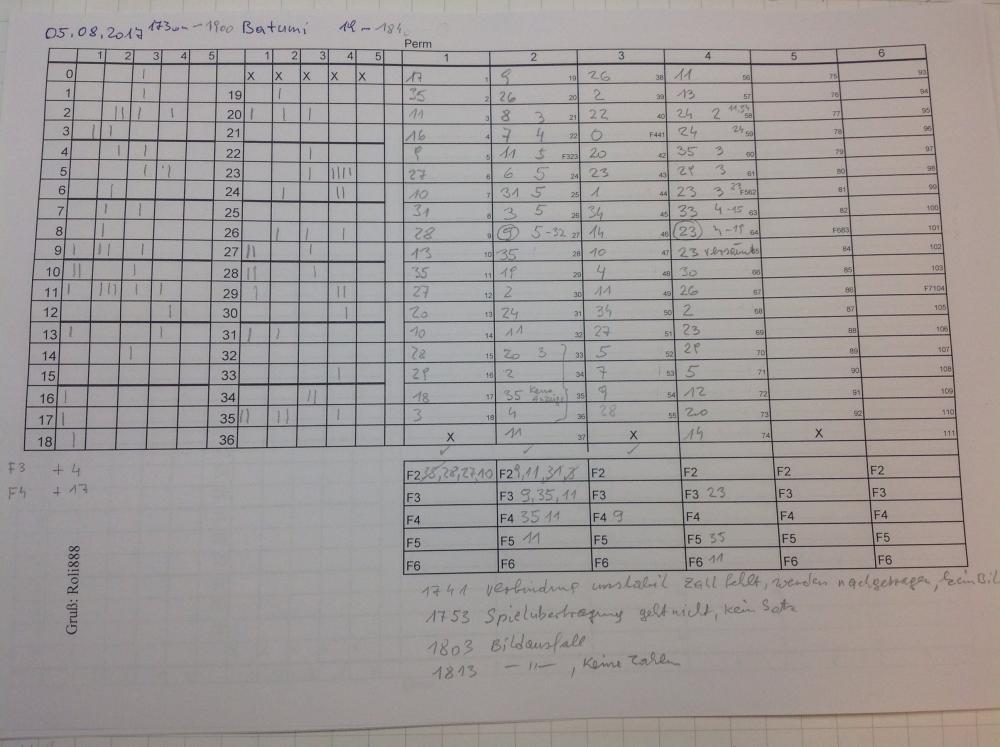 05.08.2017 1730 - 1900 Batumi 19 - 184
Perm
1 2 3 4 5 1 2 3 4 5 1 2 3 4 5 6
0 X X X X X 17 1 9 19 26 38 11 56 75 93
1 19 35 2 26 20 2 39 13 57 76 94
2 20 11 3 8 3 21 22 40 24 2 58 77 95
3 21 16 4 7 4 22 0 F441 24 59 78 96
4 22 9 5 11 5 F323 20 42 35 3 60 79 97
5 23 27 6 6 5 24 23 43 29 3 61 80 98
6 24 10 7 31 5 25 1 44 23 3 F562 81 99
7 25 31 8 3 5 26 34 45 33 4-15 63 82 100
8 26 28 9 9 5-32 27 14 46 23 4-19 64 F683 101
9 27 13 10 35 28 10 47 23 versäumt 84 102
10 28 35 11 19 29 4 48 30 66 85 103
11 29 27 12 2 30 11 49 26 67 86 F7104
12 30 20 13 24 31 34 50 2 68 87 105
13 31 10 14 11 32 27 51 23 69 88 106
14 32 28 15 20 3 33 5 52 29 70 89 107
15 33 29 16 2 34 7 53 5 71 90 108
16 34 18 17 35 Keine Anzeige 35 9 54 12 72 91 109
17 35 3 18 4 36 28 55 20 73 92 110
18 36 X 11 37 X 14 74 X 111
F3 + 4
F4 + 17
F2 35,28,27,10 F2 9,11,31,8 F2 F2 F2 F2
F3 F3 9,35,11 F3 F3 23 F3 F3
F4 F4 35 11 F4 9 F4 F4 F4
F5 F5 11 F5 F5 35 F5 F5
F6 F6 F6 F6 11 F6 F6
Gruß: Roli888
1741 Verbindung unstabil Zall fehlt, werden nachgetragen, kein Bil
1753 Spielübertragung geht nicht, kein Satz
1803 Bildausfall
1813 -"-, Keine Zahlen